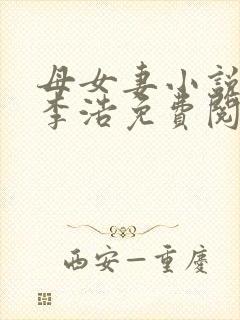 母女妻小説
李浩免費閱
西安－重慶